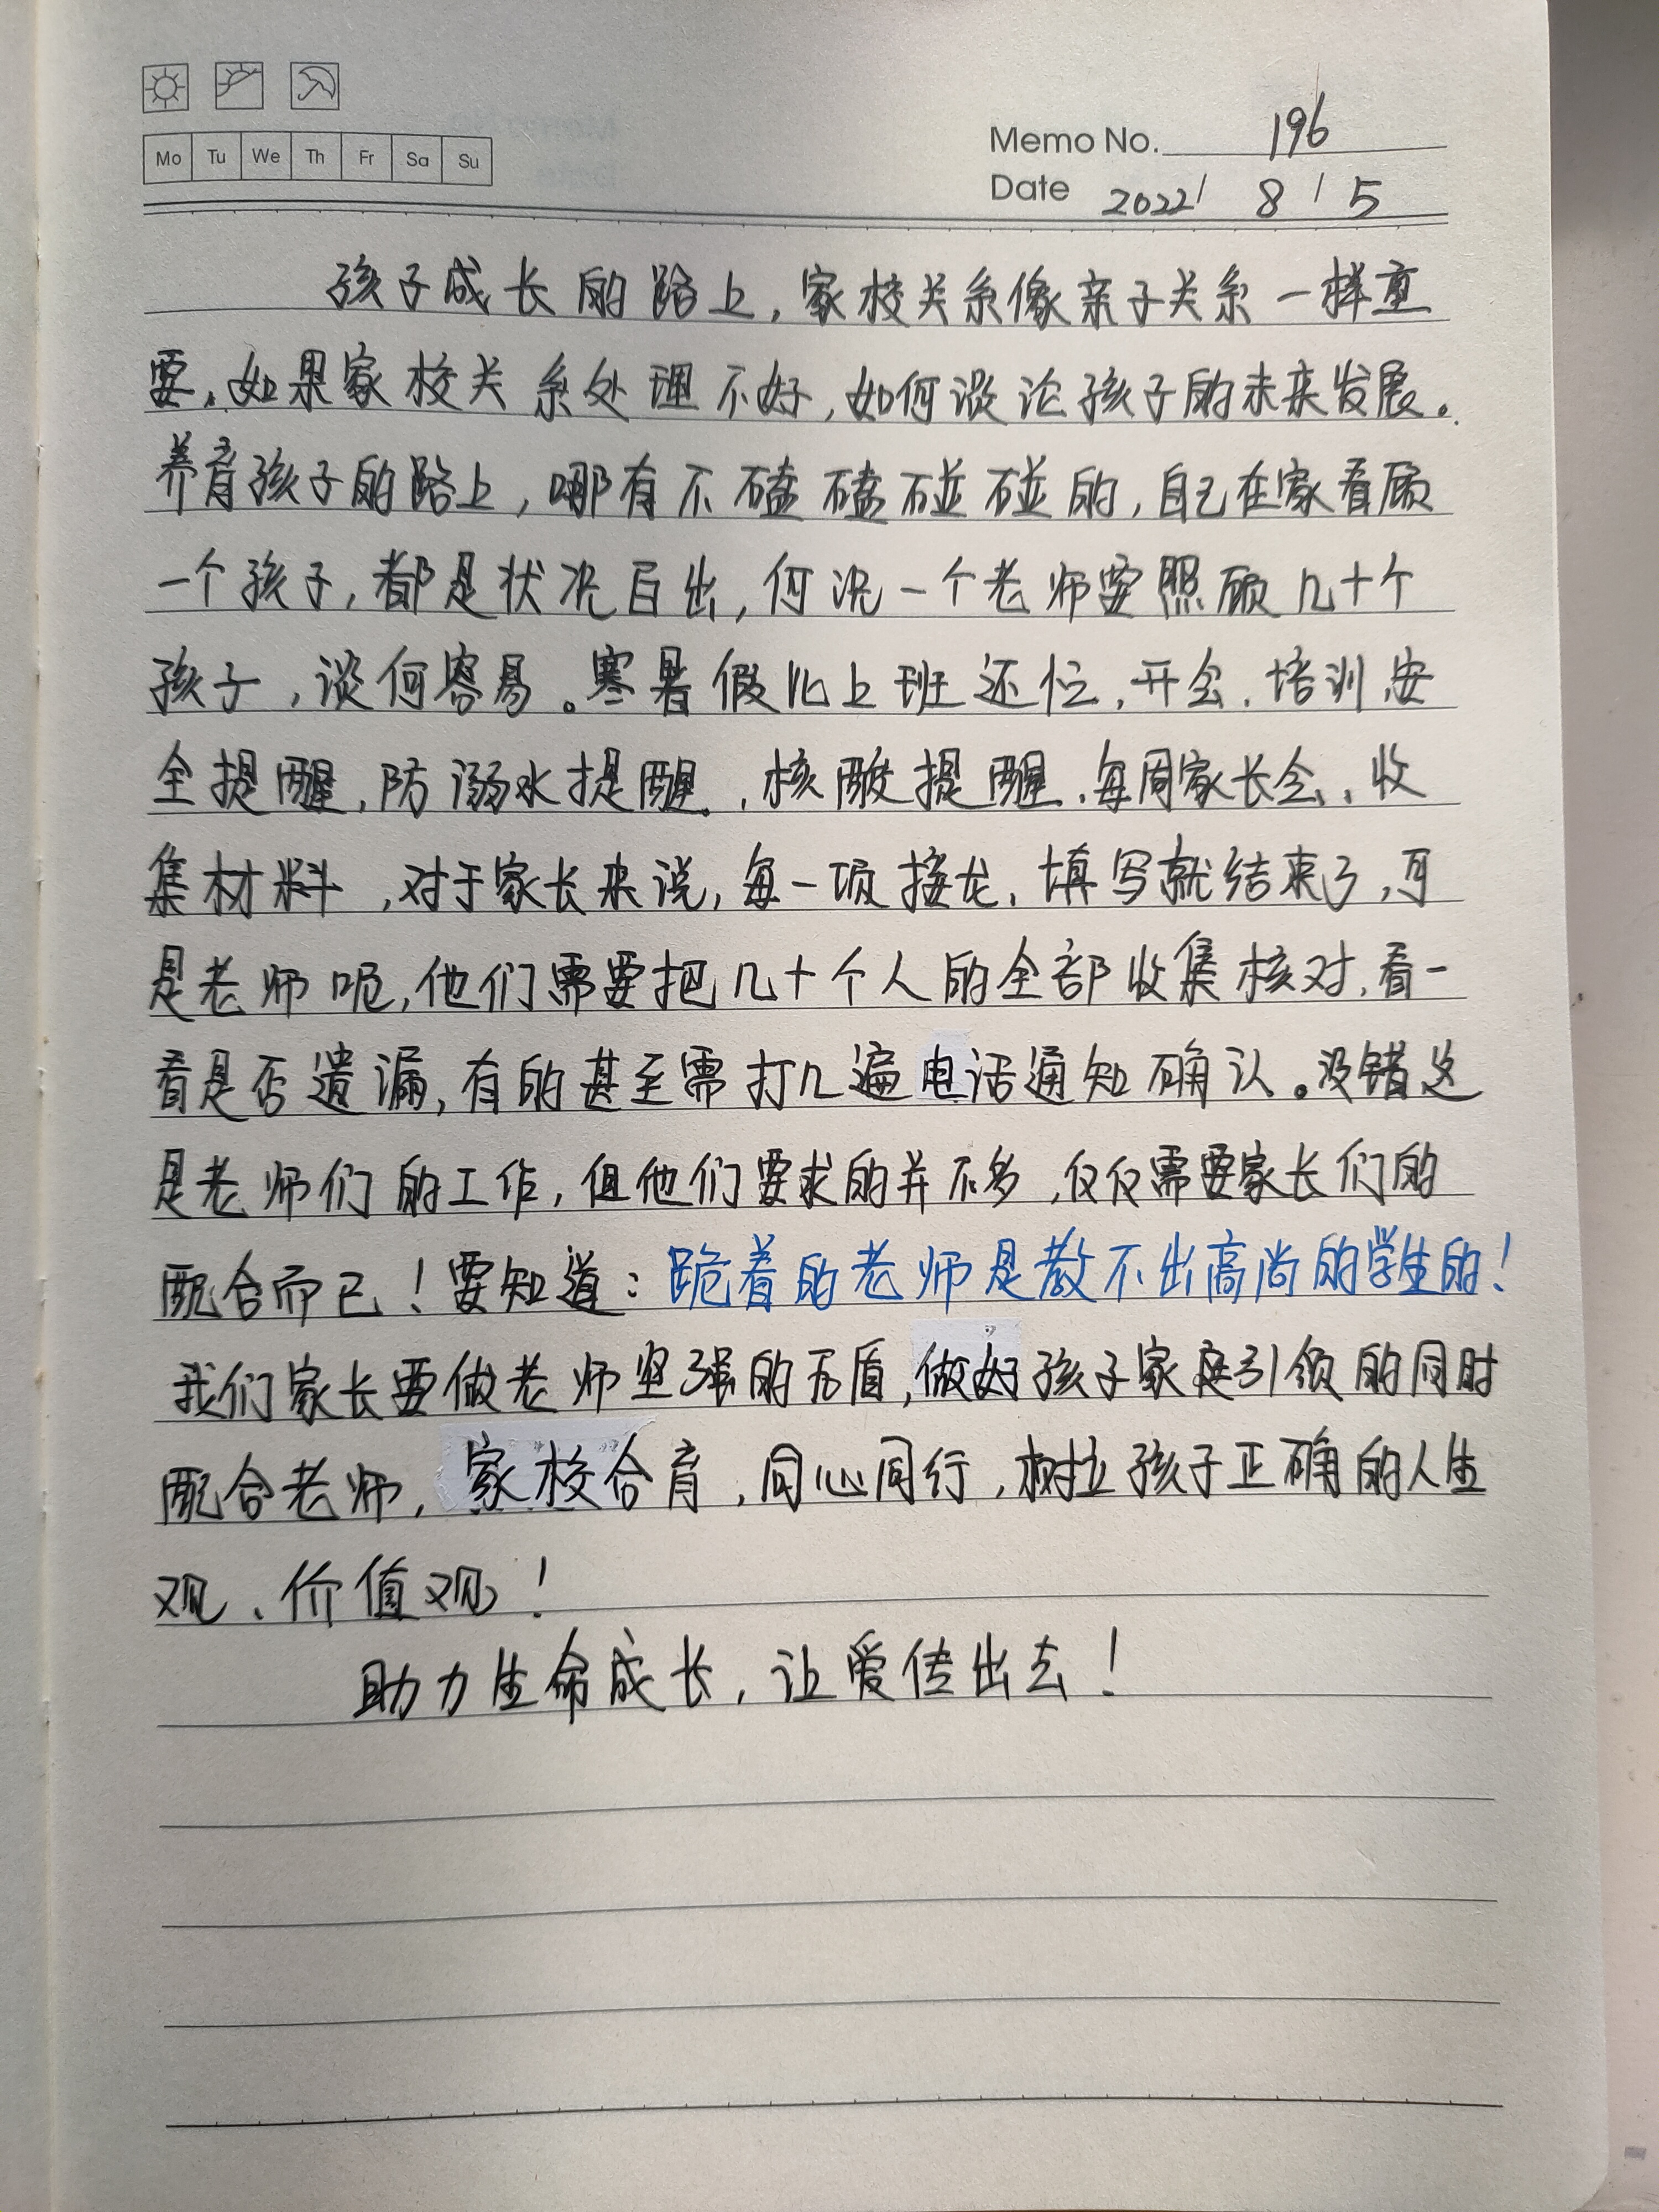 Mo Tu We Th Fr Sa Su
Memo No. 196
Date 2022/ 8 / 5
孩子成长的路上,家校关系像亲子关系一样重
要。如果家校关系处理不好,如何谈论孩子的未来发展。
养育孩子的路上,哪有不磕磕碰碰的,自己在家看顾
一个孩子,都是状况百出,何况一个老师要照顾几十个
孩子,谈何容易。寒暑假比上班还忙,开会、培训、安
全提醒,防溺水提醒、核酸提醒、每周家长会、收
集材料,对于家长来说,每一项接龙、填写就结束了,可
是老师呢,他们需要把几十个人的全部收集核对,看一
看是否遗漏,有的甚至需打几遍电话通知确认。没错这
是老师们的工作,但他们要求的并不多,仅仅需要家长们的
配合而已!要知道:跪着的老师是教不出高尚的学生的!
我们家长要做老师坚强的后盾,做好孩子家庭引领的同时
配合老师,家校合育,同心同行,树立孩子正确的人生
观、价值观!
助力生命成长,让爱传出去!